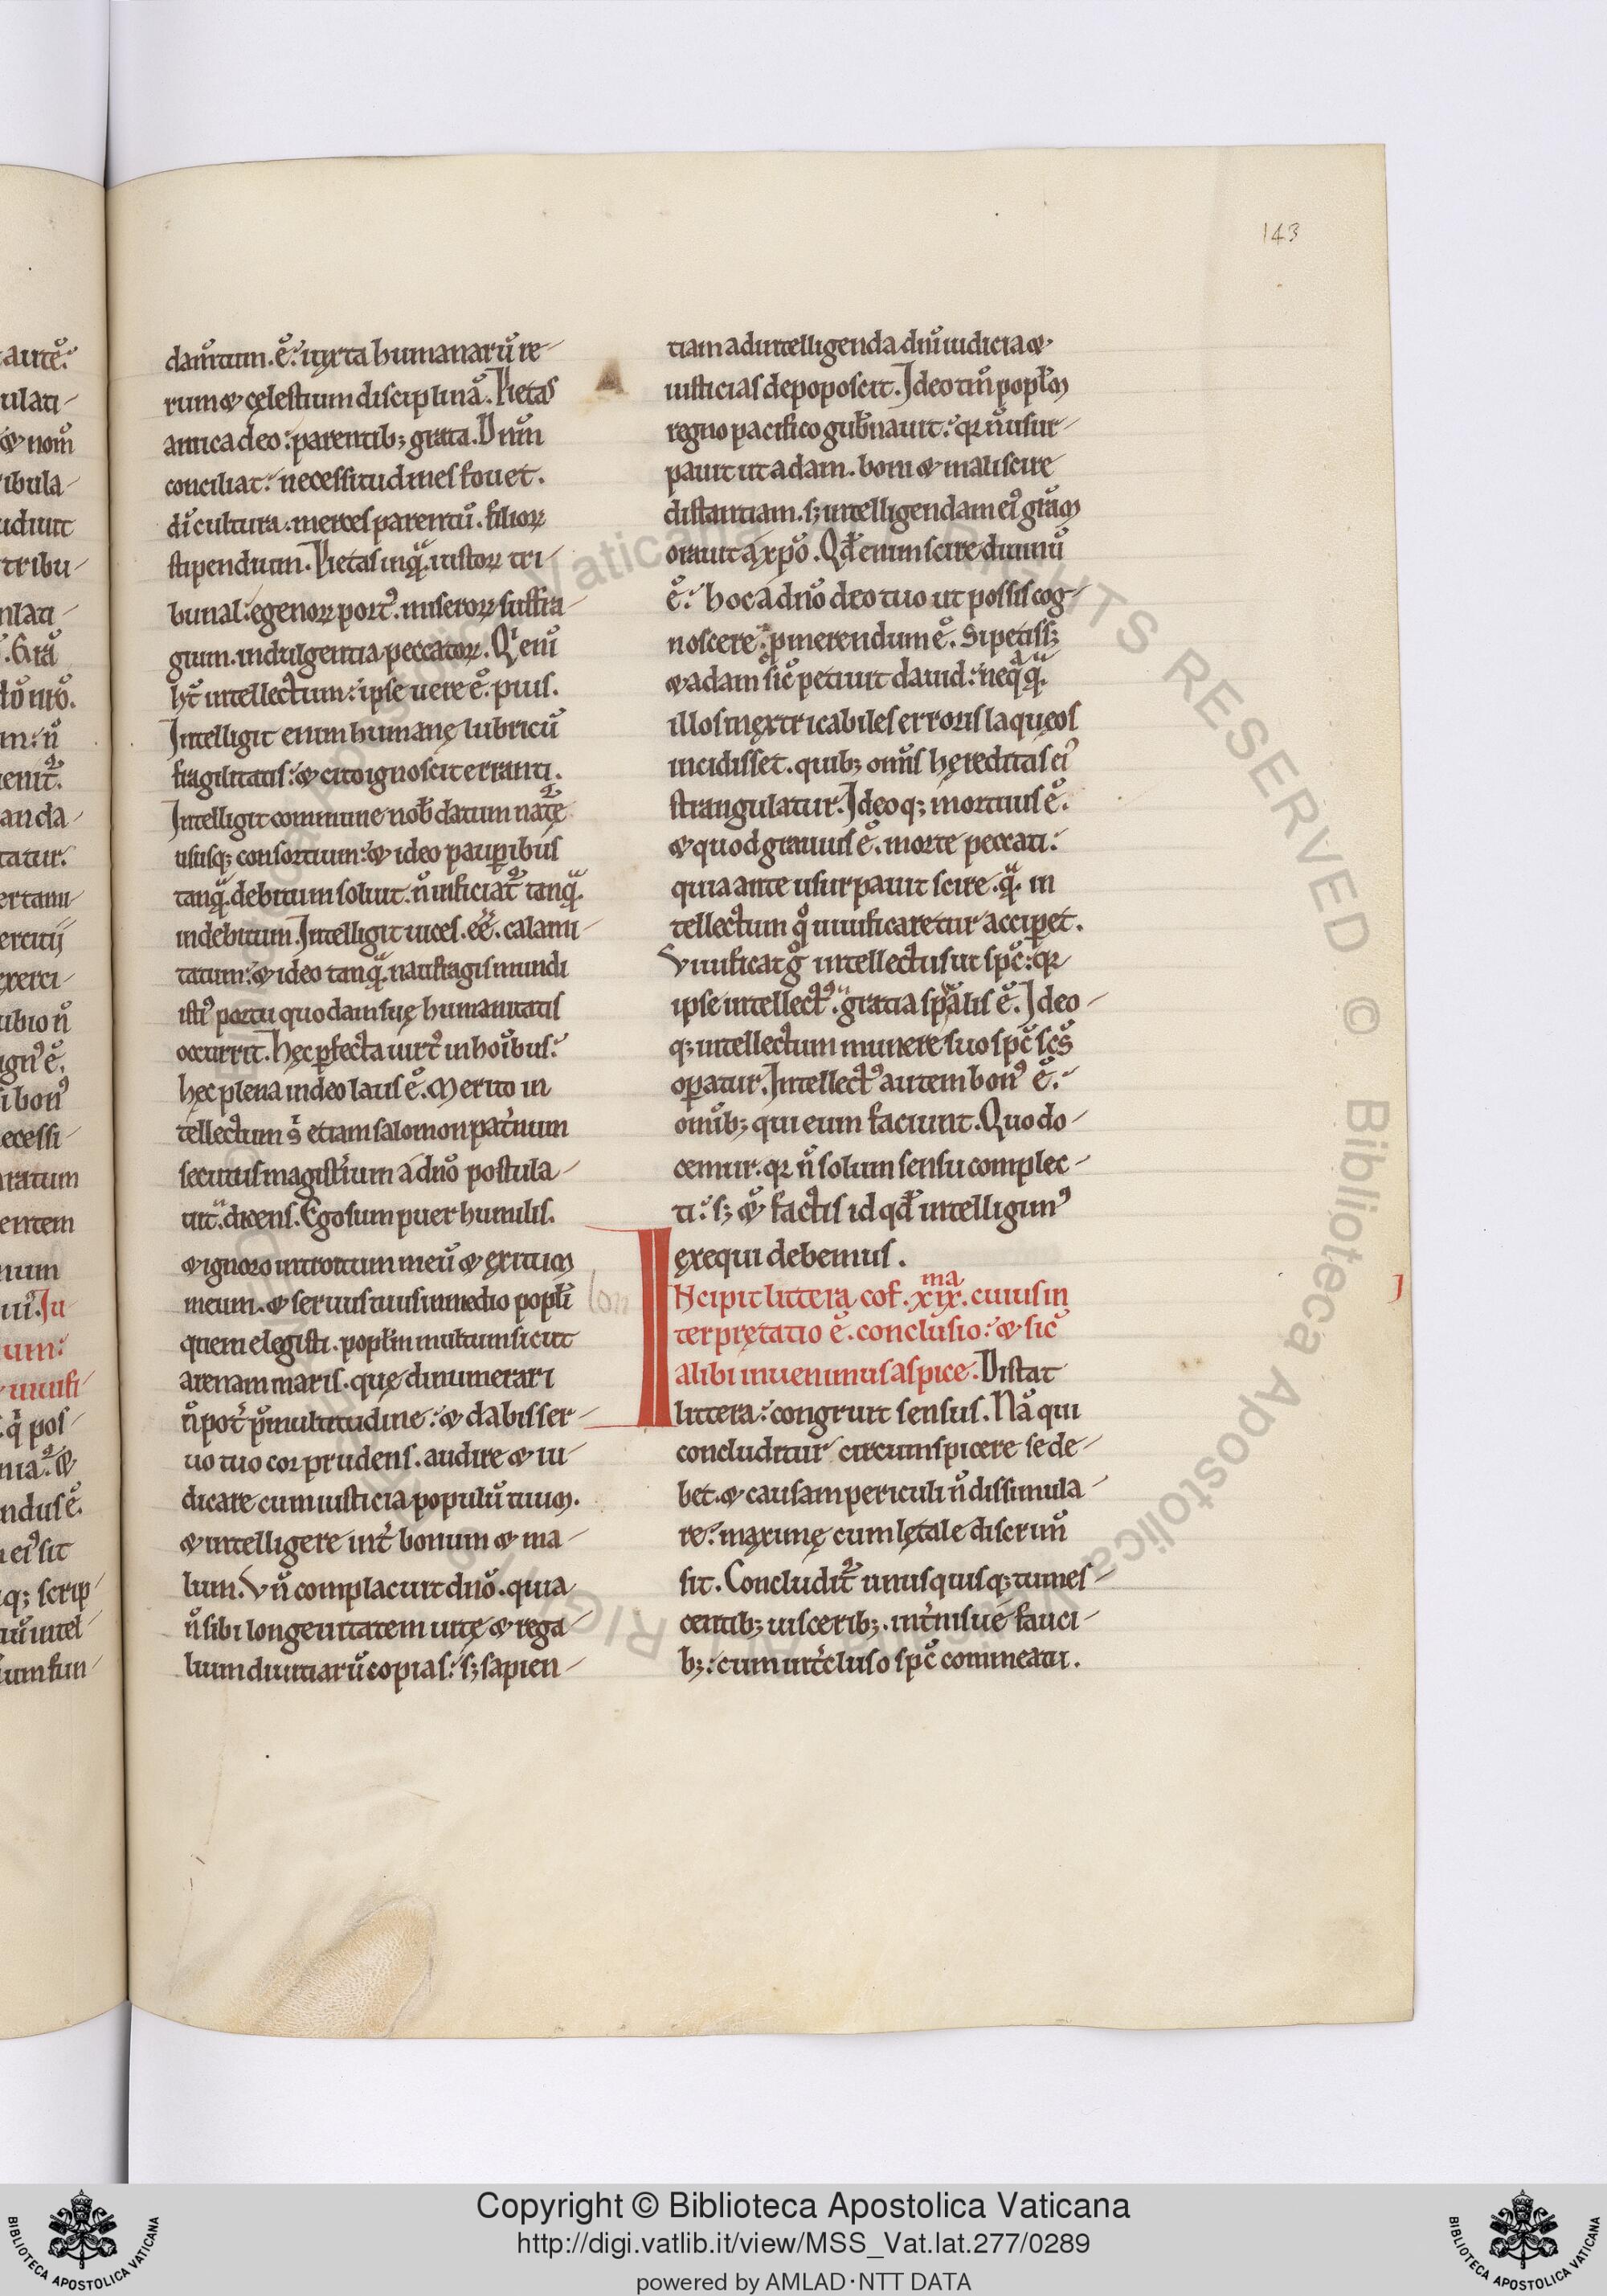 143
dam̅tum. e̅. iuxta humanaru̅ re-
rum & cęlestium disciplina̅. Pietas
amica deo: parentib; grata. Dnm̅
conciliat: necessitudines fouet.
di̅ cultura. merces parentu̅. filioꝝ
stipendium. Pietas inqͣ. iustoꝝ tri-
bunal: egenoꝝ portꝰ. miseroꝝ suffra-
gium. indulgentia peccatoꝝ. Qͥ eni̅
ht̅ intellectum: ipse uere e̅. pius.
Intelligit enim humanę lubricu̅
fragilitatis: & cito ignoscit erranti.
Intelligit commune nob̅ datum nat᷑ę
ususq; consortium: & ideo paup̲ibus
tanqͣ. debitum soluit. n̅ inficiat᷑ tanqͣ.
indebitum. Intelligit uices. ee̅. calami-
tatum: & ideo tanqͣ. naufragis mundi
istiꝰ portu quodam suę humanitatis
occurrit. Hęc p̲fecta uirtꝰ in hoi̅bus:
hęc plena in deo laus e̅. Merito in
tellectum sͥ etiam salomon pat̉num
secutus magist̉ium a dn̅o postula-
uit. dicens. Ego sum puer humilis.
& ignoro introitum meu̅ & exitum
meum. & seruus tuus in medio popl̅i
quem elegisti. popl̅m multum sicut
arenam maris. quę dinumerari
n̅ pot̉ p̲ multitudine: & dabis ser-
uo tuo cor prudens. audire & iu-
dicare cum iusticia populu̅ tuum.
& intelligere int̉ bonum & ma-
lum. Vn̅ complacuit dn̅o. quia
n̅ sibi longeuitatem uitę & rega-
lium diuitiaru̅ copias: s; sapien-
tiam ad intelligenda dn̅i iudicia &
iusticias depoposcit. Ideo tm̅ popl̅m
regno pacifico gub̉nauit: qꝛ n̅ usur-
pauit ut adam. boni & mali scire
distantiam. s; intelligendam eiꝰ gr̅am
orauit a xp̅o. Qd̅ enim scire diuinu̅
e̅: hoc a dn̅o deo tuo ut possis cog-
noscere: p̲merendum e̅. Si petiss;
& adam sic̅ petiuit dauid: neqͣqͣ.
illos inextricabiles erroris laqueos
incidisset. quib; omn̅s hęreditas eiꝰ
strangulatur. Ideoq; mortuus e̅.
& quod grauius e̅. morte peccati:
quia ante usurpauit scire. qͣ. in
tellectum qͦ uiuificaretur accip̲et.
Viuificat gͦ intellectus ut sp̅c: qꝛ
ipse intellectꝰ. gratia spa̅lis e̅. Ideo-
q; intellectum munere suo sp̅c sc̅s
op̲atur. Intellectꝰ autem bonꝰ e̅.
omi̅b; qui eum faciunt. Quo do-
cemur. qꝛ n̅ solum sensu complec-
ti: s; & factis id qd̅ intelligimꝰ
exequi debemus.
INcipit littera cof. xixͫͣ. cuius in
terprętatio e̅. conclusio: & sic̅
alibi inuenimus aspice. Distat
littera: congruit sensus. Na̅ qui
concluditur circumspicere se de-
bet. & causam periculi n̅ dissimula-
re: maxime cum lętale discrim̅
sit. Concludit᷑ unusquisq; tumes-
centib; uiscerib;. int̉nis ue fauci-
b;: cum int̉cluso sp̅c commeatu.
Copyright © Biblioteca Apostolica Vaticana
http://digi.vatlib.it/view/MSS_Vat.lat.277/0289
powered by AMLAD·NTT DATA